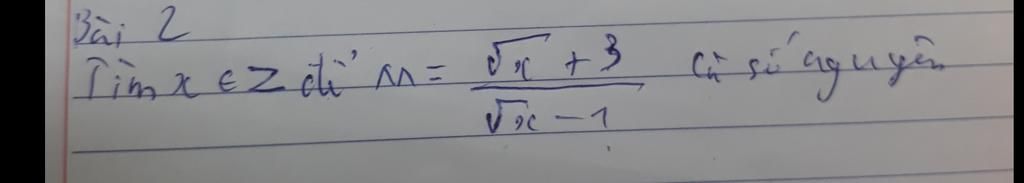 Bài 2
Tìm x ∈ Z để M = (√x + 3)/(√x - 1) là số nguyên